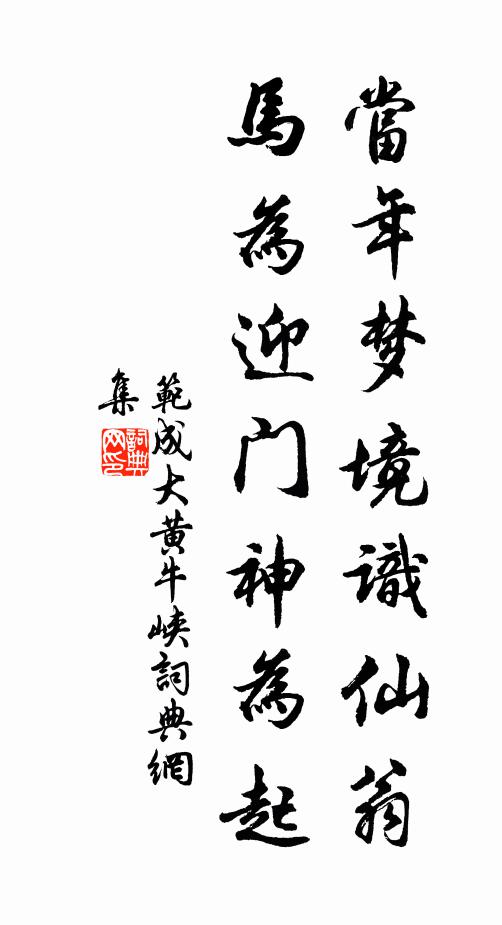 當年梦境識仙翁
馬為迎门神為起
範成大黄牛峡詞典網
集
詞典
网印